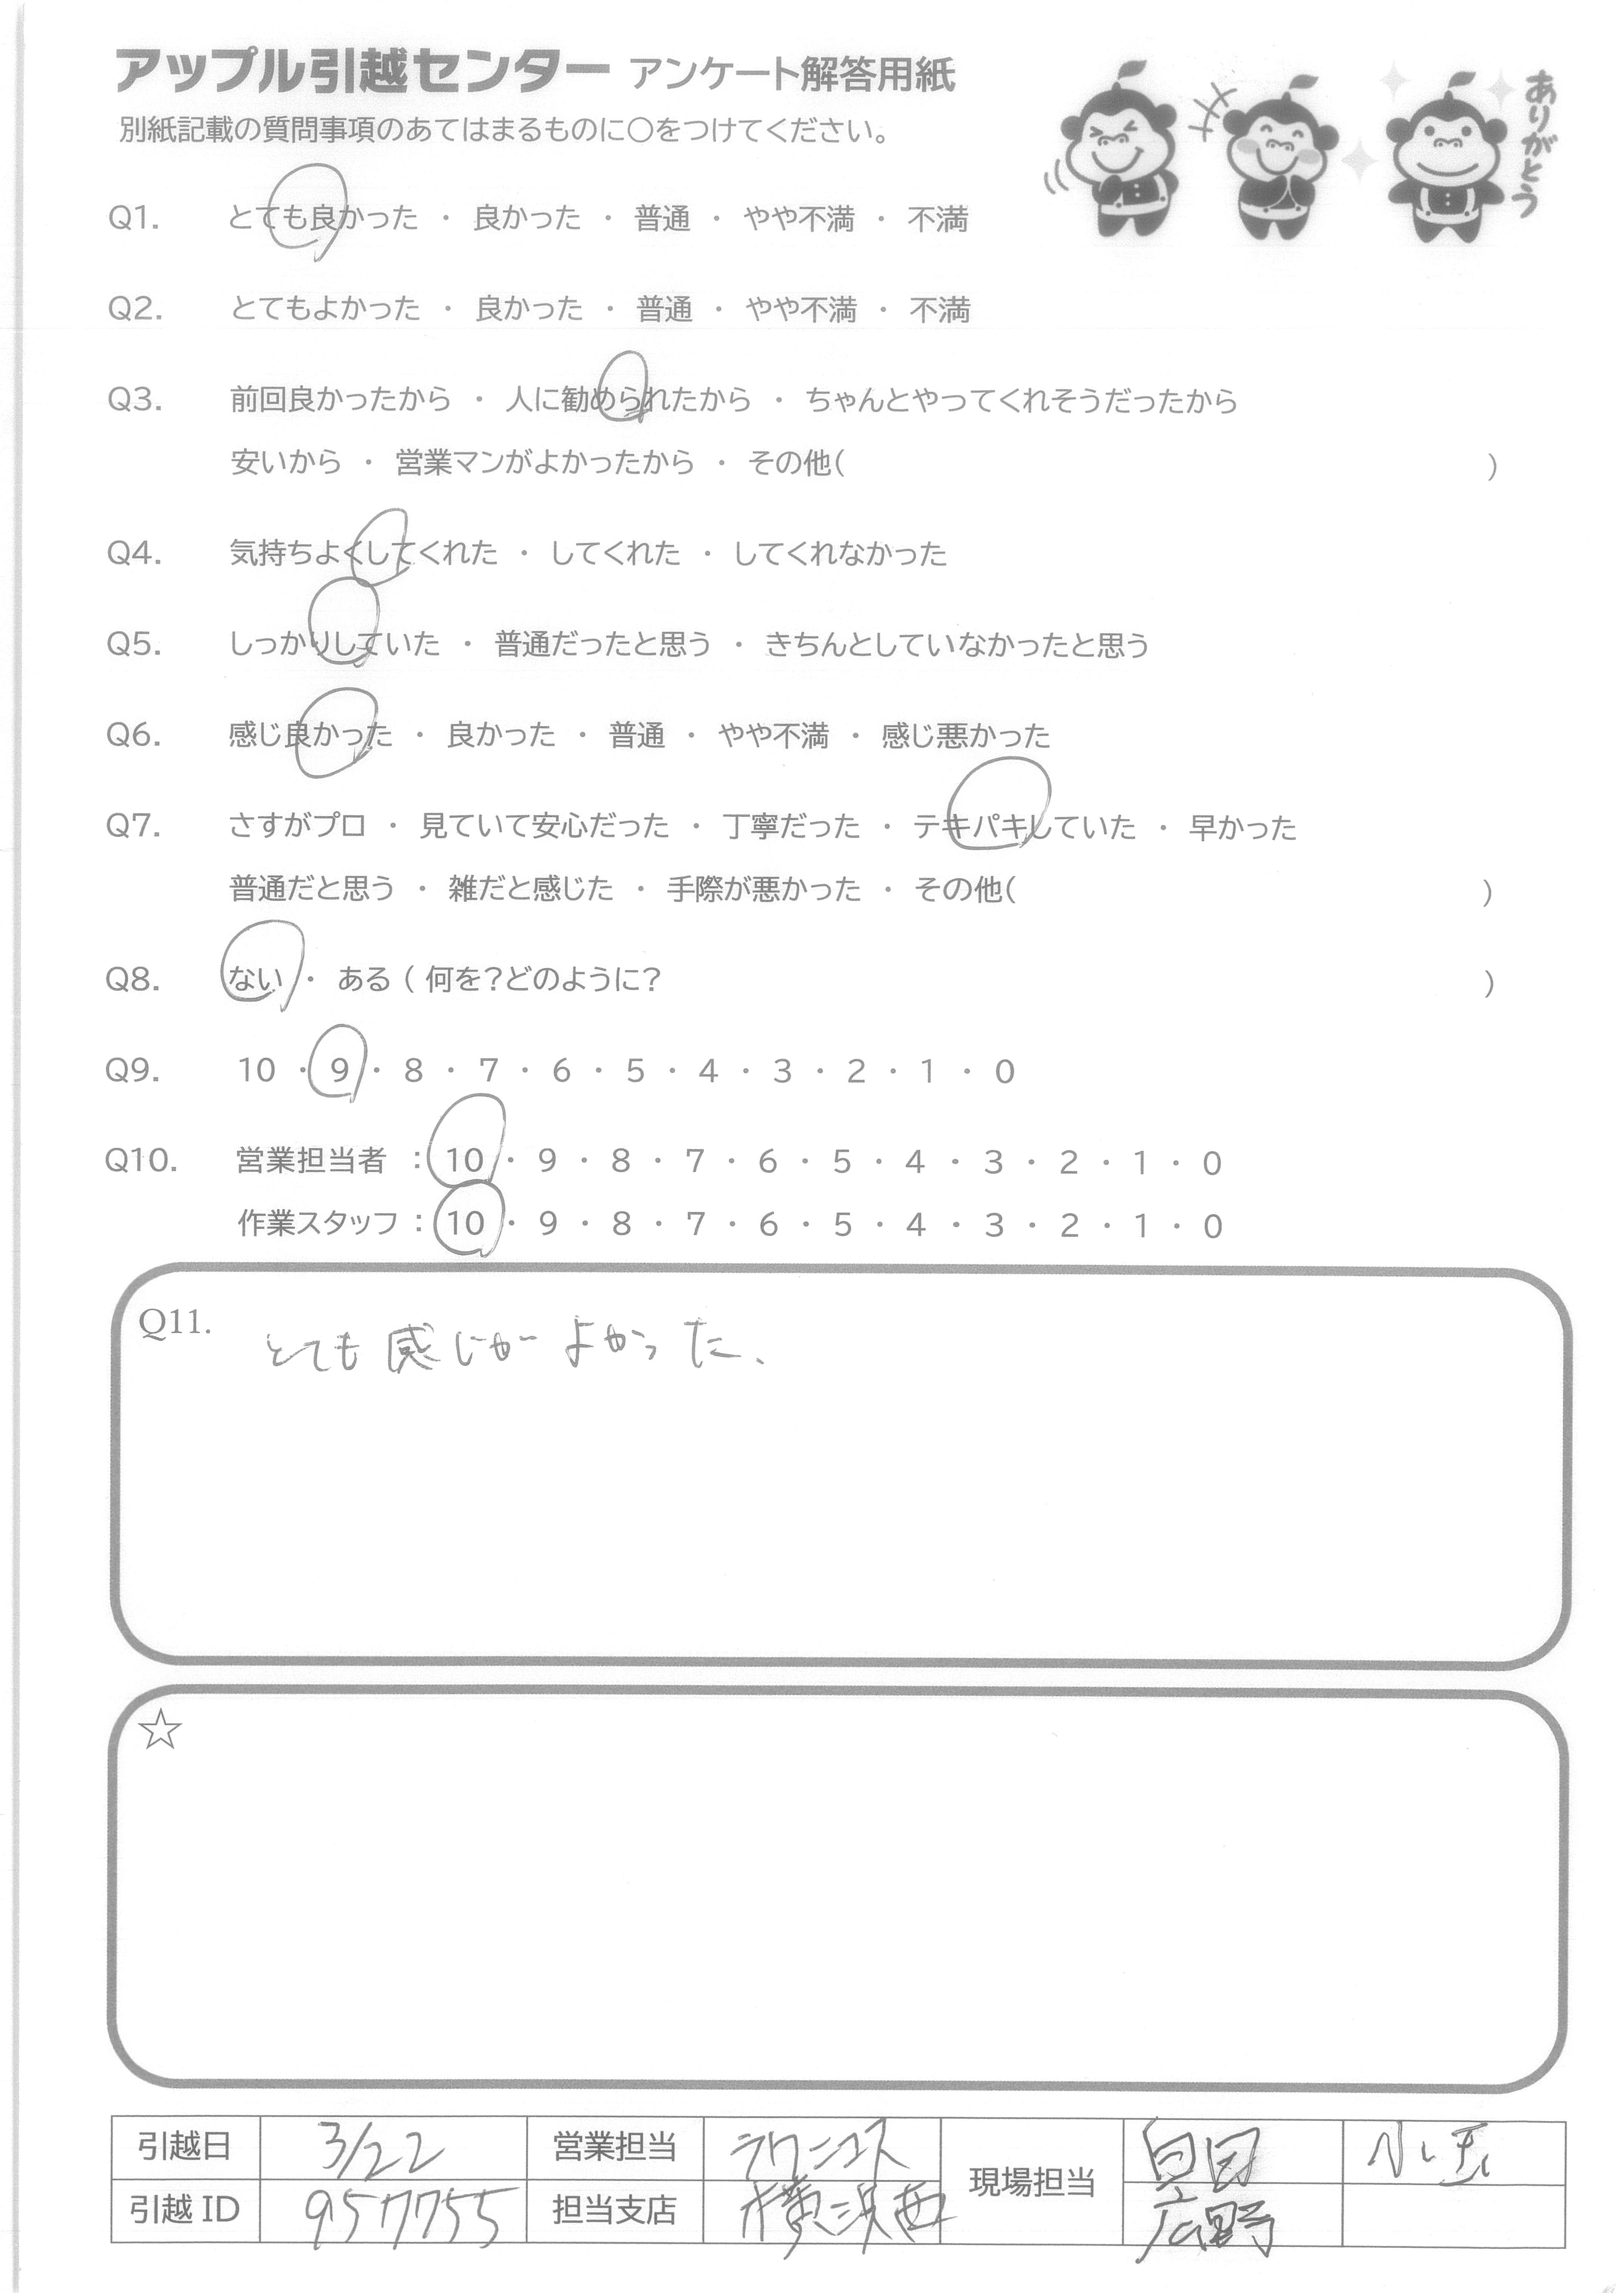 アップル引越センター アンケート解答用紙
別紙記載の質問事項のあてはまるものに○をつけてください。
ありがとう
Q1. とても良かった ・ 良かった ・ 普通 ・ やや不満 ・ 不満
Q2. とてもよかった ・ 良かった ・ 普通 ・ やや不満 ・ 不満
Q3. 前回良かったから ・ 人に勧められたから ・ ちゃんとやってくれそうだったから
安いから ・ 営業マンがよかったから ・ その他( )
Q4. 気持ちよくしてくれた ・ してくれた ・ してくれなかった
Q5. しっかりしていた ・ 普通だったと思う ・ きちんとしていなかったと思う
Q6. 感じ良かった ・ 良かった ・ 普通 ・ やや不満 ・ 感じ悪かった
Q7. さすがプロ ・ 見ていて安心だった ・ 丁寧だった ・ テキパキしていた ・ 早かった
普通だと思う ・ 雑だと感じた ・ 手際が悪かった ・ その他( )
Q8. ない ・ ある ( 何を?どのように? )
Q9. 10 ・ 9 ・ 8 ・ 7 ・ 6 ・ 5 ・ 4 ・ 3 ・ 2 ・ 1 ・ 0
Q10. 営業担当者 : 10 ・ 9 ・ 8 ・ 7 ・ 6 ・ 5 ・ 4 ・ 3 ・ 2 ・ 1 ・ 0
作業スタッフ : 10 ・ 9 ・ 8 ・ 7 ・ 6 ・ 5 ・ 4 ・ 3 ・ 2 ・ 1 ・ 0
Q11. とても感じがよかった、
☆
引越日 3/22 営業担当 現場担当
引越 ID 957755 担当支店 横浜西 広野